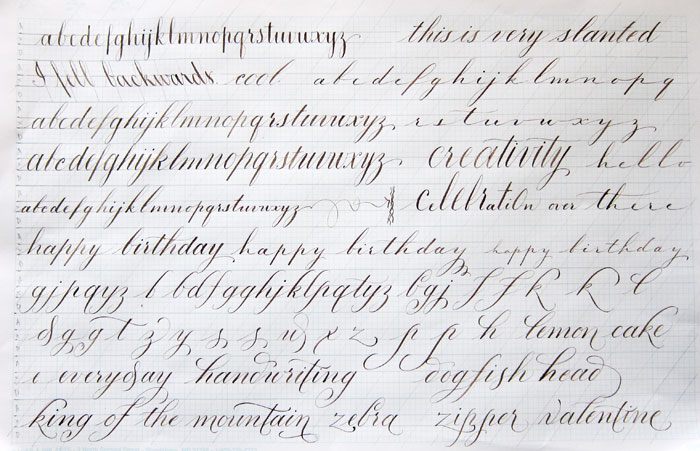 abcdefghijklmnopqrstuvwxyz this is very slanted
I fell backwards. cool. abcdefghijklmnopq
abcdefghijklmnopqrstuvwxyz rstuvwxyz
abcdefghijklmnopqrstuvwxyz creativity hello
abcdefghijklmnopqrstuvwxyz Celebration over there
happy birthday happy birthday happy birthday
gjpqyz b bdfgghjklpqtyz bgj f f k k l
d g g t z y s s w x z p p h lemon cake
i everyday handwriting dogfish head
king of the mountain zebra zipper valentine